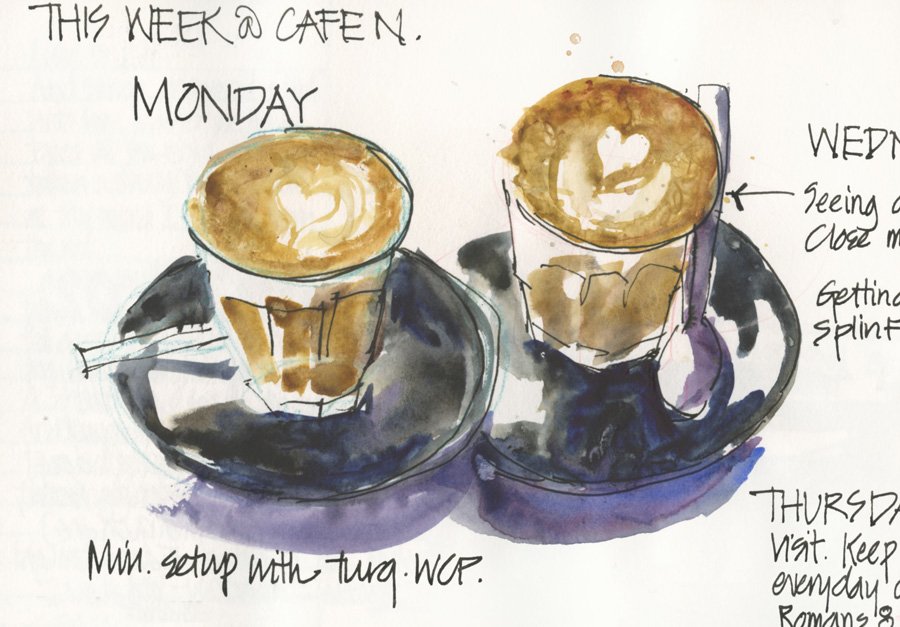 THIS WEEK @ CAFE N.
MONDAY
WEDN
Seeing
Close m
Getting
Splin
THURSDA
Visit. Keep
everyday
Romans 8
Min. setup with turq. WCP.